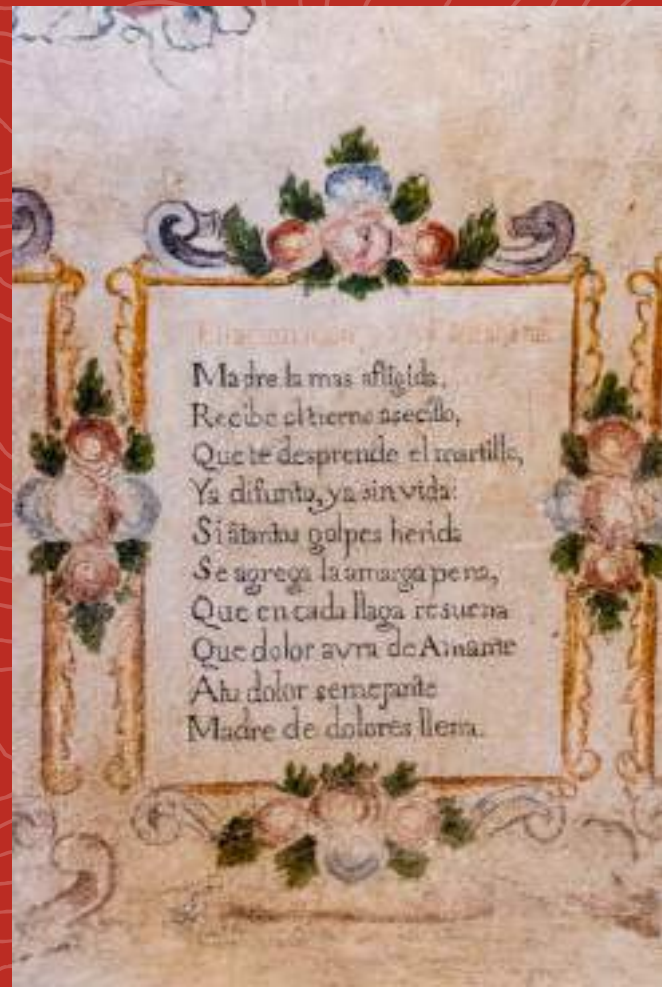 Madre la mas afligida,
Recibe el tierno asecillo,
Que te desprende el martillo,
Ya difunto, ya sin vida:
Si â tantos golpes herida
Se agrega la amarga pena,
Que en cada llaga resuena
Que dolor avra de Amante
A tu dolor semejante
Madre de dolores llena.